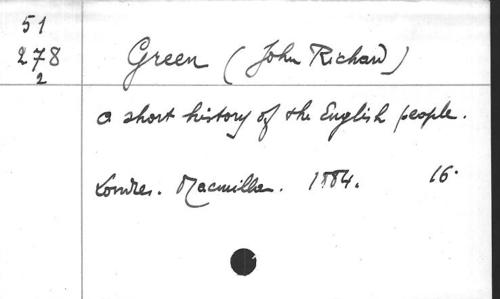 51
278
2
Green (John Richard)
a short history of the English people.
Londres. Macmillan. 1884. 16.